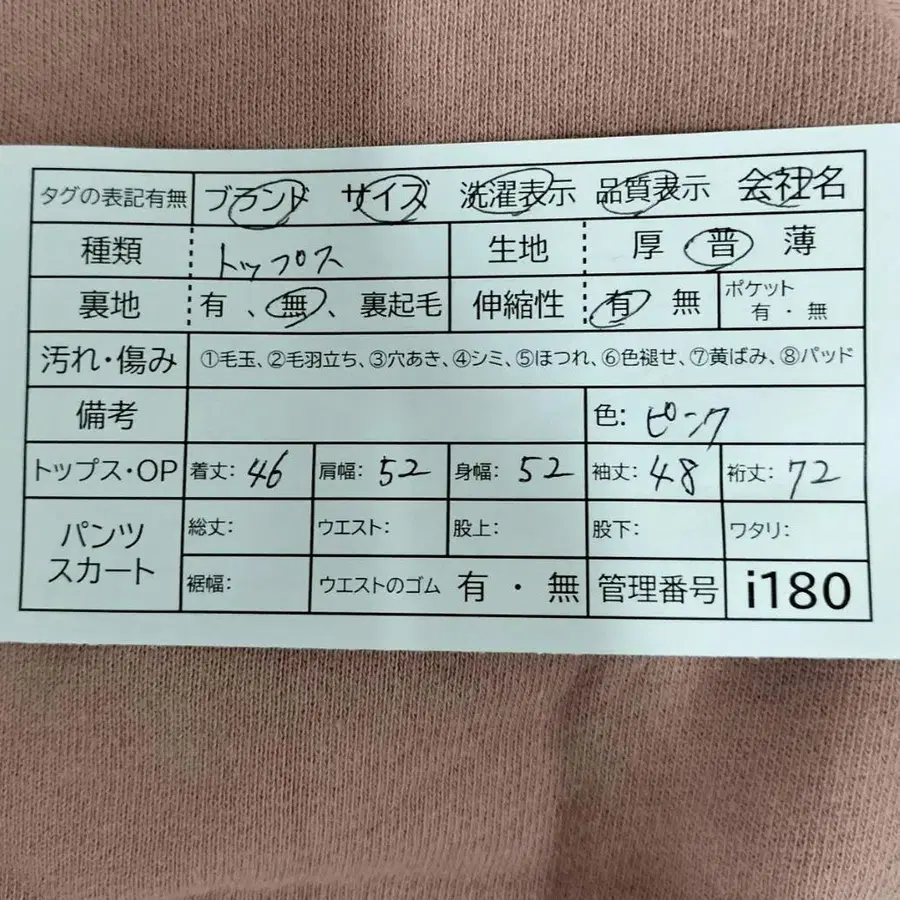 タグの表記有無 ブランド サイズ 洗濯表示 品質表示 会社名
種類 トップス 生地 厚 普 薄
裏地 有、無、裏起毛 伸縮性 有 無 ポケット 有・無
汚れ・傷み ①毛玉、②毛羽立ち、③穴あき、④シミ、⑤ほつれ、⑥色褪せ、⑦黄ばみ、⑧パッド
備考 色: ピンク
トップス・OP 着丈: 46 肩幅: 52 身幅: 52 袖丈: 48 裄丈: 72
パンツ スカート 総丈: ウエスト: 股上: 股下: ワタリ:
裾幅: ウエストのゴム 有・無 管理番号 i180